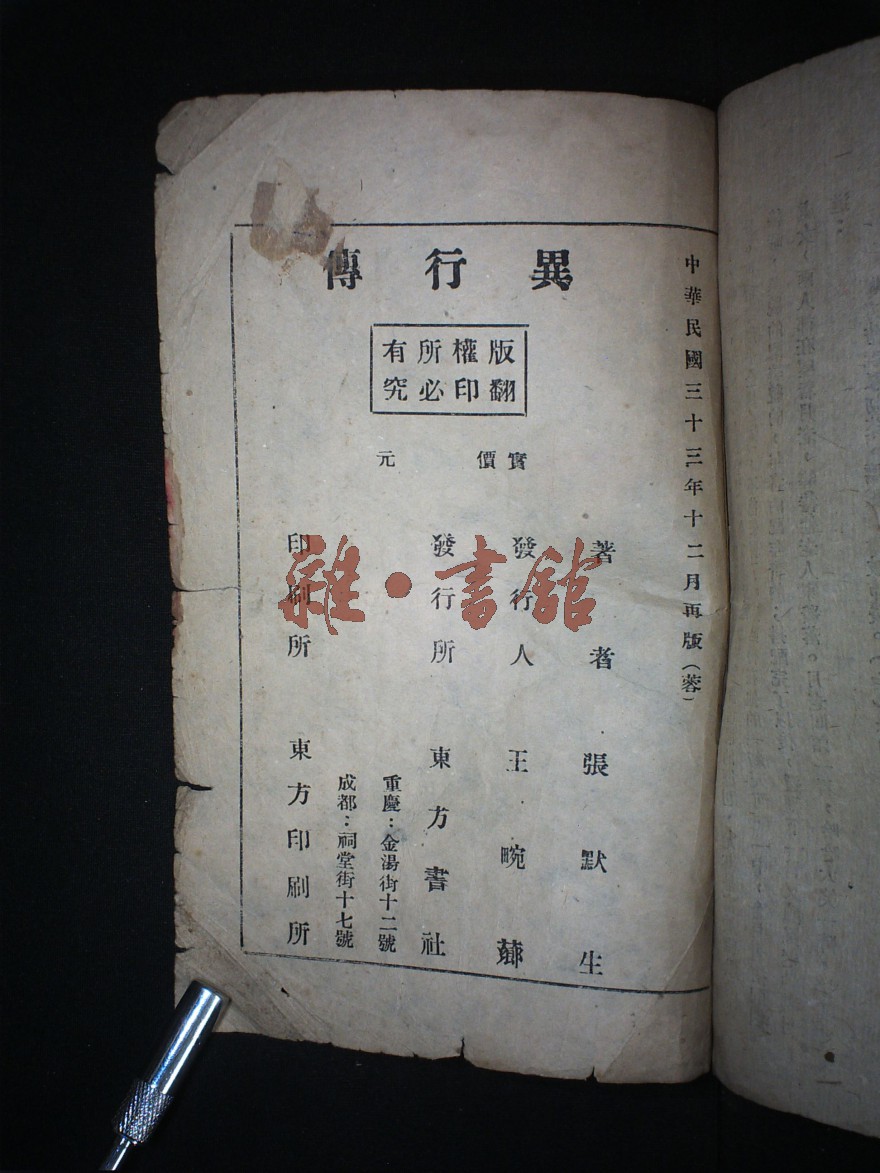 中華民國三十三年十二月再版(蓉)
異行傳
版權所有
翻印必究
實價 元
著者 張默生
發行人 王畹薌
發行所 東方書社
重慶：金湯街十二號
成都：祠堂街十七號
印刷所 東方印刷所
雜·書館